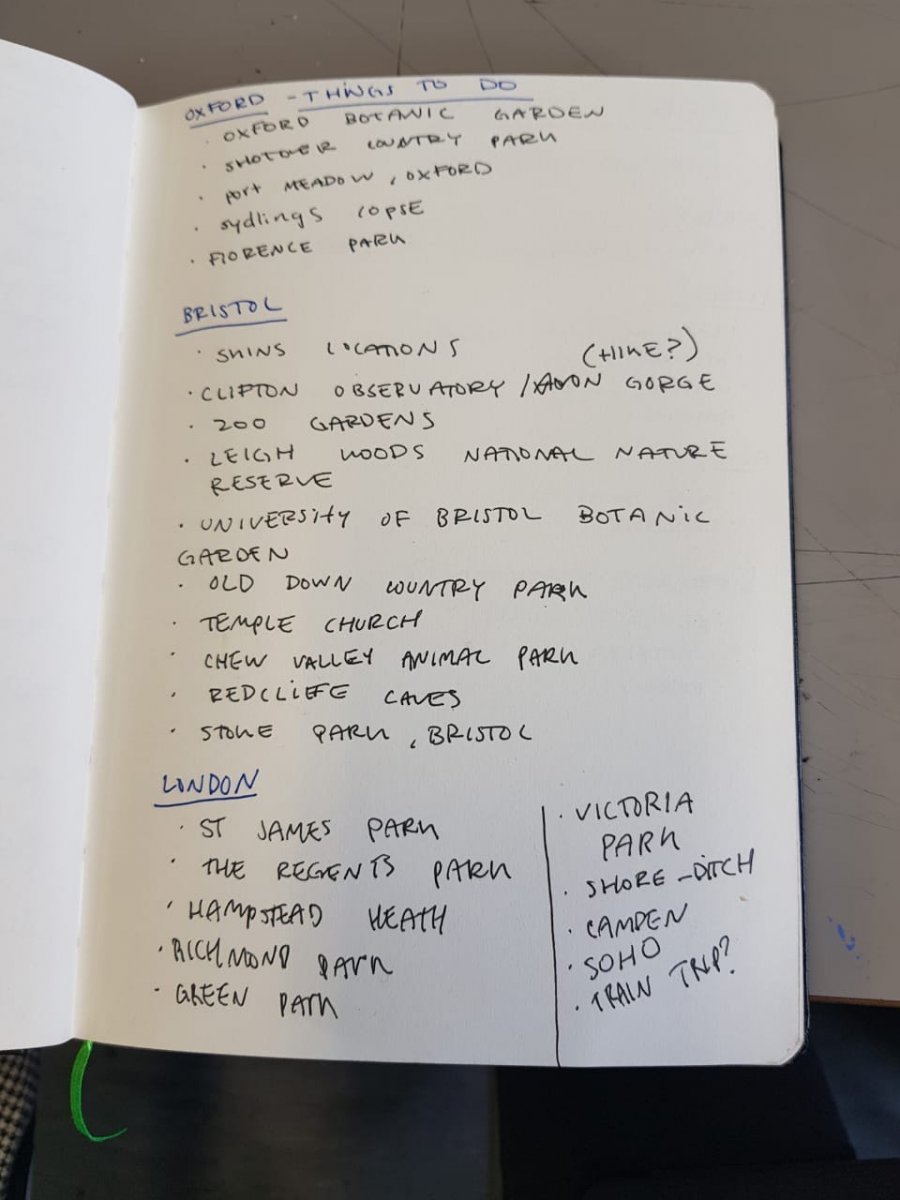 OXFORD - THINGS TO DO
· OXFORD BOTANIC GARDEN
· SHOTOVER COUNTRY PARK
· PORT MEADOW, OXFORD
· sydlings COPSE
· FlORENCE PARK
BRISTOL
· SKINS LOCATIONS (HIKE?)
· CLIFTON OBSERVATORY / AVON GORGE
· ZOO GARDENS
· LEIGH WOODS NATIONAL NATURE
RESERVE
· UNIVERSITY OF BRISTOL BOTANIC
GARDEN
· OLD DOWN COUNTRY PARK
· TEMPLE CHURCH
· CHEW VALLEY ANIMAL PARK
· REDCLIFFE CAVES
· STOKE PARK, BRISTOL
LONDON
· ST JAMES PARK
· THE REGENTS PARK
· HAMPSTEAD HEATH
· RICHMOND PARK
· GREEN PARK
· VICTORIA
PARK
· SHORE-DITCH
· CAMDEN
· SOHO
· TRAIN TRIP?